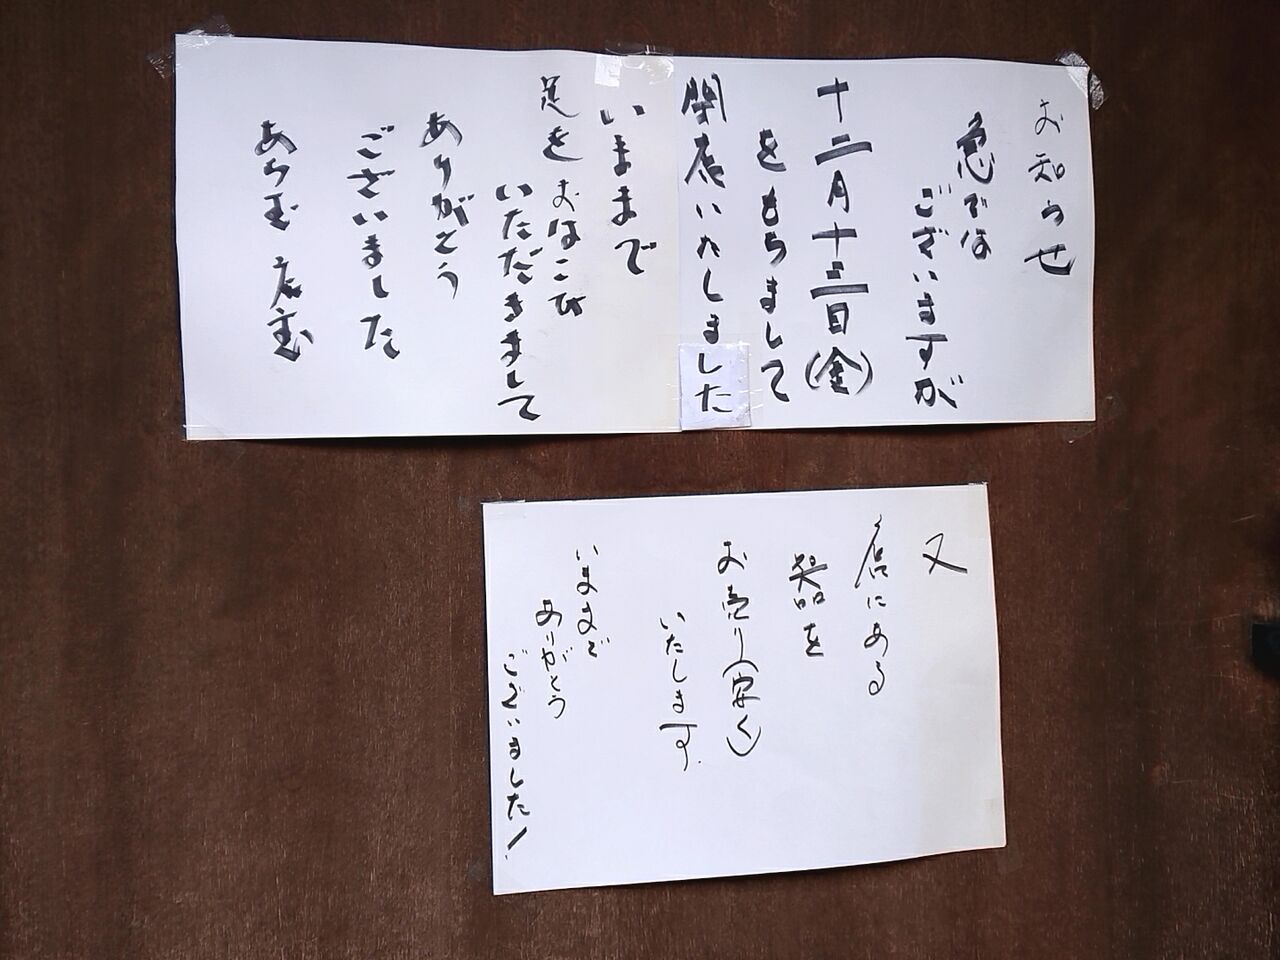 お知らせ
急では
ございますが
十二月十三日(金)
をもちまして
閉店いたしました
いままで
足をおはこび
いただきまして
ありがとう
ございました
あら玉 店主
又
店にある
器を
お売り(安く)
いたします.
いままで
ありがとう
ございました!